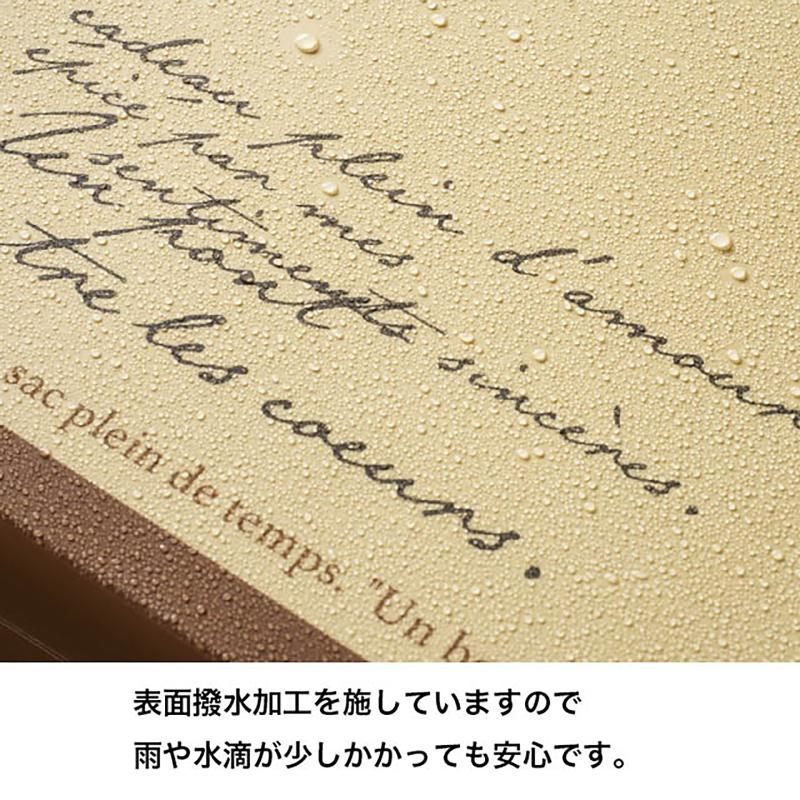 cadeau plein d'amour
épicé par mes
sentiments sincères.
Un pont
tre les coeurs.
sac plein de temps. "Un b
表面撥水加工を施していますので
雨や水滴が少しかかっても安心です。